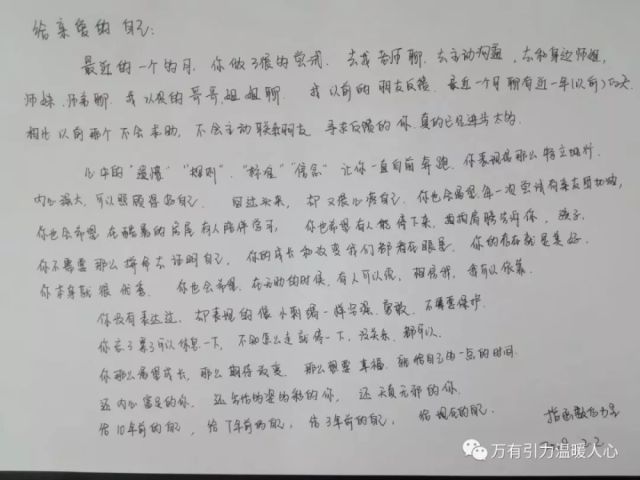 给亲爱的自己:
最近的一个多月,你做了很多尝试。去找老师聊,去主动沟通,去和身边师姐,
师妹、师弟聊。找以前的哥哥,姐姐聊。找以前的朋友反馈。最近一个月聊有近一年(以前)的天
相比以前那个不会求助,不会主动联系朋友寻求反馈的你。真的已经进步太多。
心中的"爱情""规则"、"标准""信念"让你一直向前奔跑。你表现得那么特立独行。
内心强大,可以照顾得好自己。回过头来,却又很心疼自己。你也会希望每一次尝试有亲友团加油,
你也会希望在酷暑的房屋有人陪伴学习,你也希望有人能停下来,拍拍肩膀告诉你,孩子,
你不需要那么拼命去证明自己,你的成长和改变我们都看在眼里。你的存在就是美好。
你本身就很优秀。你也会希望,在无助的时候,有人可以说,相信你,
你没有表达过,却表现的像小刺猬一样坚强、勇敢、不需要保护。
你累了可以休息一下,不知怎么走就停一下,没关系,都可以。
你那么渴望成长,那么期待改变,那么想要幸福。就给自己多一点的时间。
还内心富足的你,还多姿多彩的你,还天真无邪的你。
给10年前的自己,给7年前的自己,给3年前的自己,给现在的自己。
2019.2.2
万有引力温暖人心